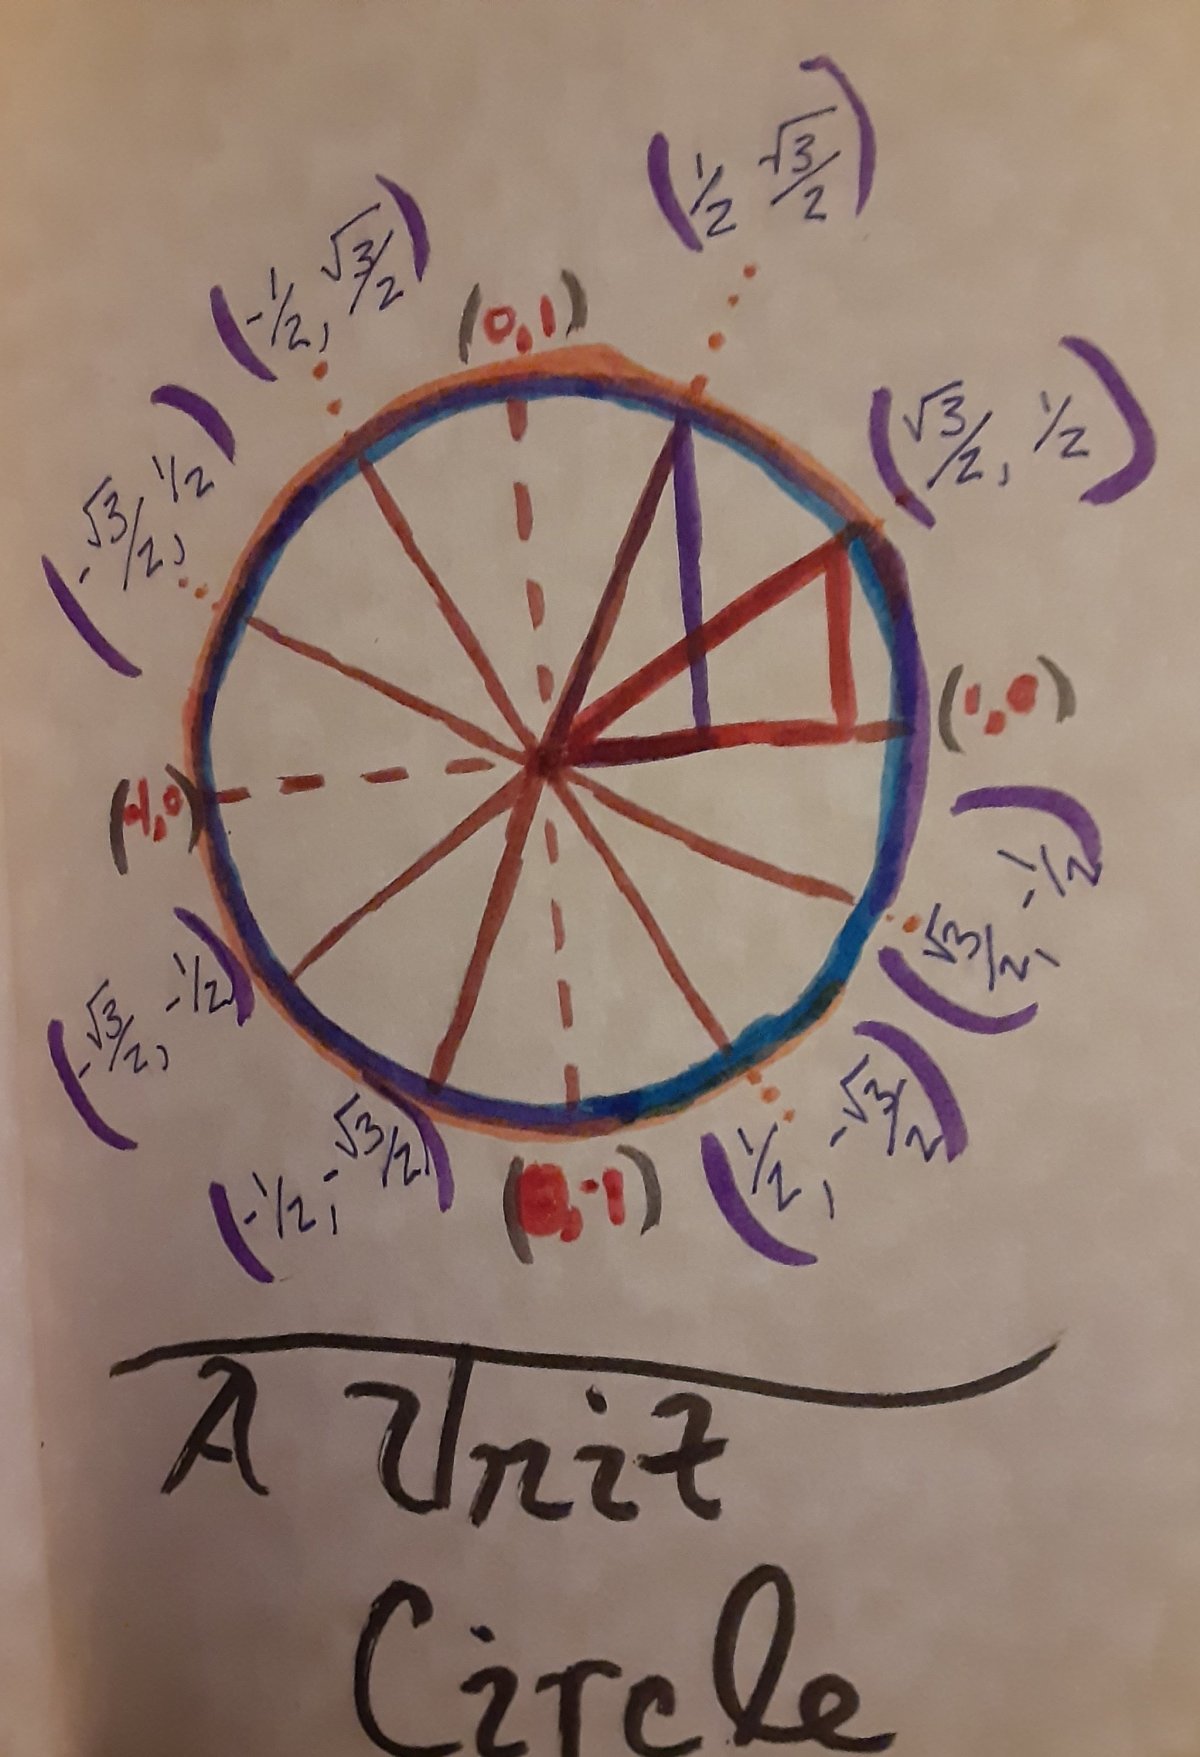 (1/2 √3/2)
(-1/2, √3/2)
(0,1)
(√3/2, 1/2)
(-√3/2, 1/2)
(1,0)
(-1,0)
(√3/2, -1/2)
(-√3/2, -1/2)
(1/2, -√3/2)
(-1/2, -√3/2)
(0,-1)
A Unit
Circle